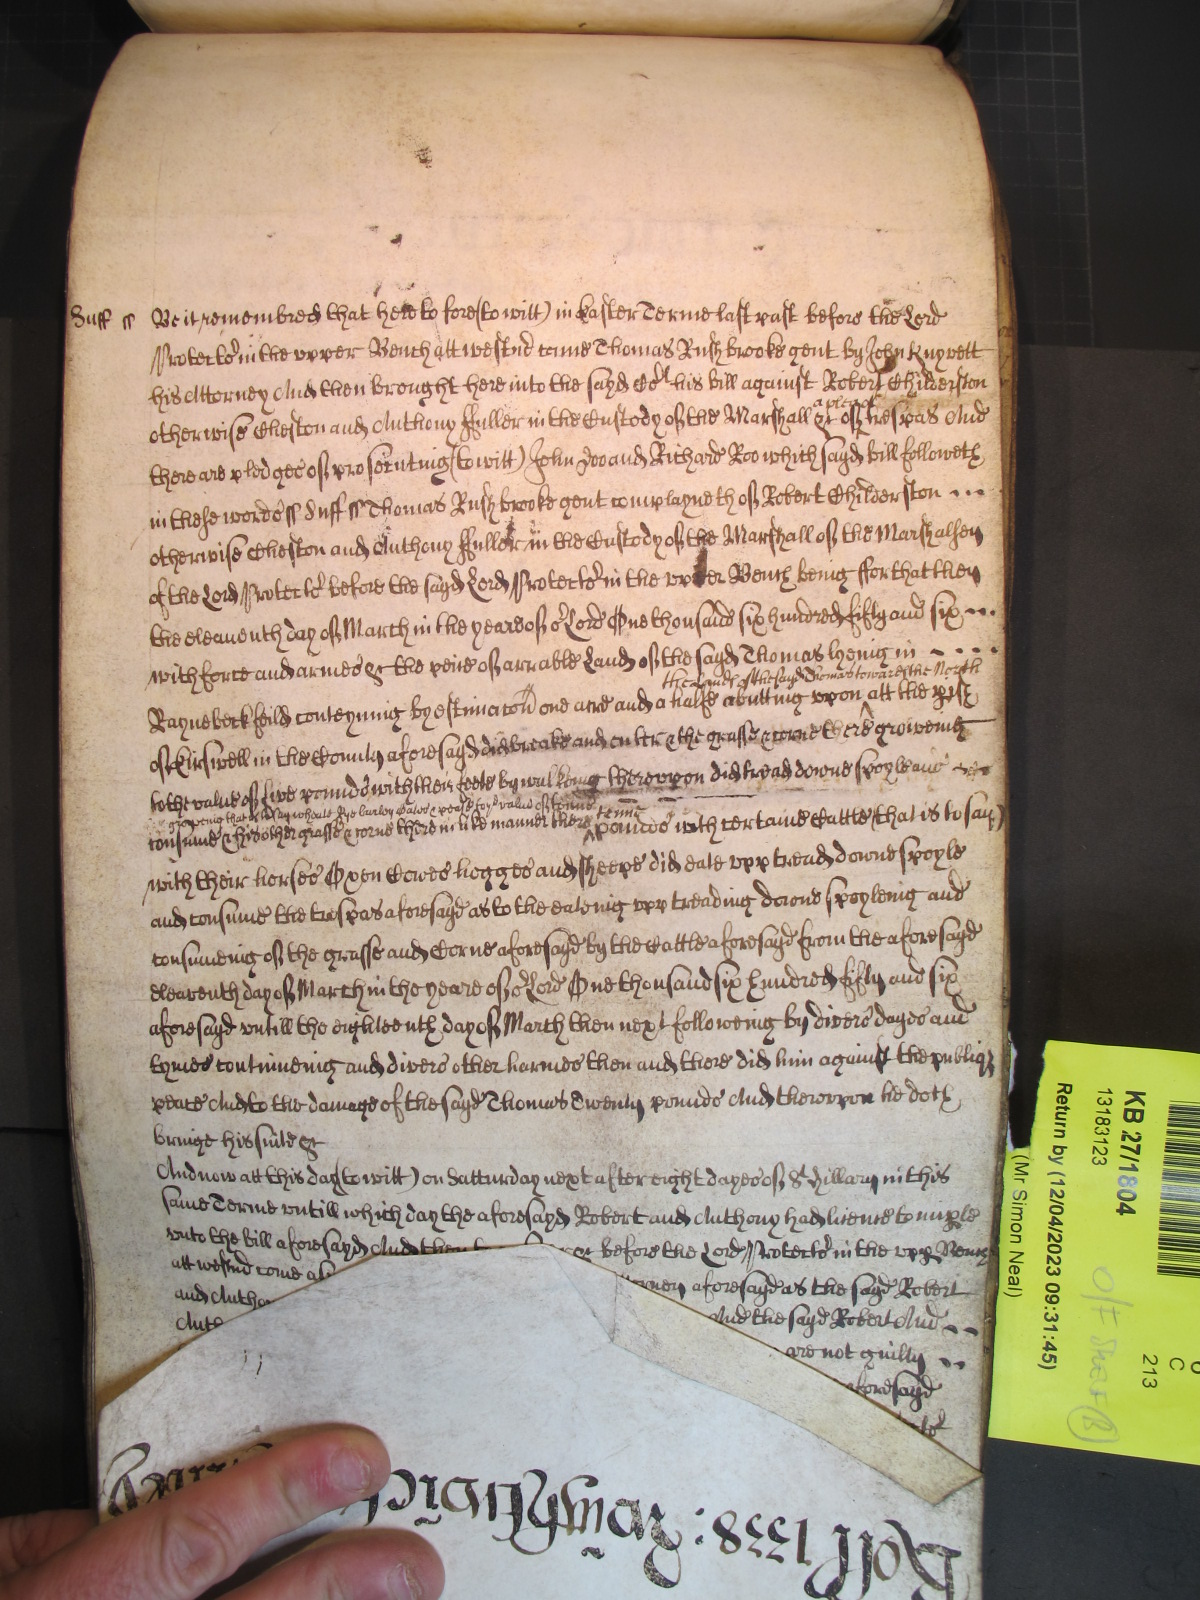 Suff ss Be it remembred that heretofore (to witt) in Easter Terme last past before the Lord
Protector in the upper Bench att Westmr came Thomas Rushbrooke gent by John Knyvett
his Attorney And then brought here into the sayd Cort his bill against Robert Childerston
a plea of
otherwise Cheston and Anthony ffuller in the Custody of the Marshall &c of trespas And
there are pledges of prosecuting (to witt) John Doo and Richard Roo which sayd bill followeth
in these wordes ss Suff ss Thomas Rushbrooke gent complayneth of Robert Childerston
otherwise Cheston and Anthony ffuller in the Custody of the Marshall of the Marshalsey
of the Lord Protector before the sayd Lord Protector in the upper Bench being ffor that they
the eleaventh day of March in the yeare of or Lord One thousand six hundred fifty and six
with force and armes &c the peice of arrable Land of the sayd Thomas lyeing in
the Lands of the sayd Thomas towards the North
Raynebeck feild conteyning by estimacon one acre and a halfe abutting upon att the pish
of Kirswell in the County aforesayd did breake and enter & the grasse & corne there groweing
to the value of five pounds with their feete by walking thereupon did tread downe spoyle and
consume & his other grasse & corne there in like manner there
tenne
pounds with certaine Cattle (that is to say)
with their horses Oxen Cowes hogges and sheepe did eate upp tread downe spoyle
and consume the trespas aforesayd as to the eateing upp treading downe spoyleing and
consumeing of the grasse and Corne aforesayd by the Cattle aforesayd from the aforesayd
eleaventh day of March in the yeare of or Lord One thousand six hundred fifty and six
aforesayd untill the eighteenth day of March then next followeing by divers dayes and
tymes continueing and divers other harmes then and there did him against the publiq
peace And to the damage of the sayd Thomas Twenty pounds And thereupon he doth
bringe his suite &c
And now att this day (to witt) on Satturday next after eight dayes of St Hillary in this
same Terme untill which day the aforesayd Robert and Anthony had licence to imple
unto the bill aforesayd And then &c before the Lord Protector in the upp Bench
att Westmr came as
and Antho
aforesayd as the sayd Robert
Anth
And the sayd Robert And
are not guilty
aforesayd
Roll 1338:
KB 27/1804
13183123
Return by (12/04/2023 09:31:45)
(Mr Simon Neal)
C
213